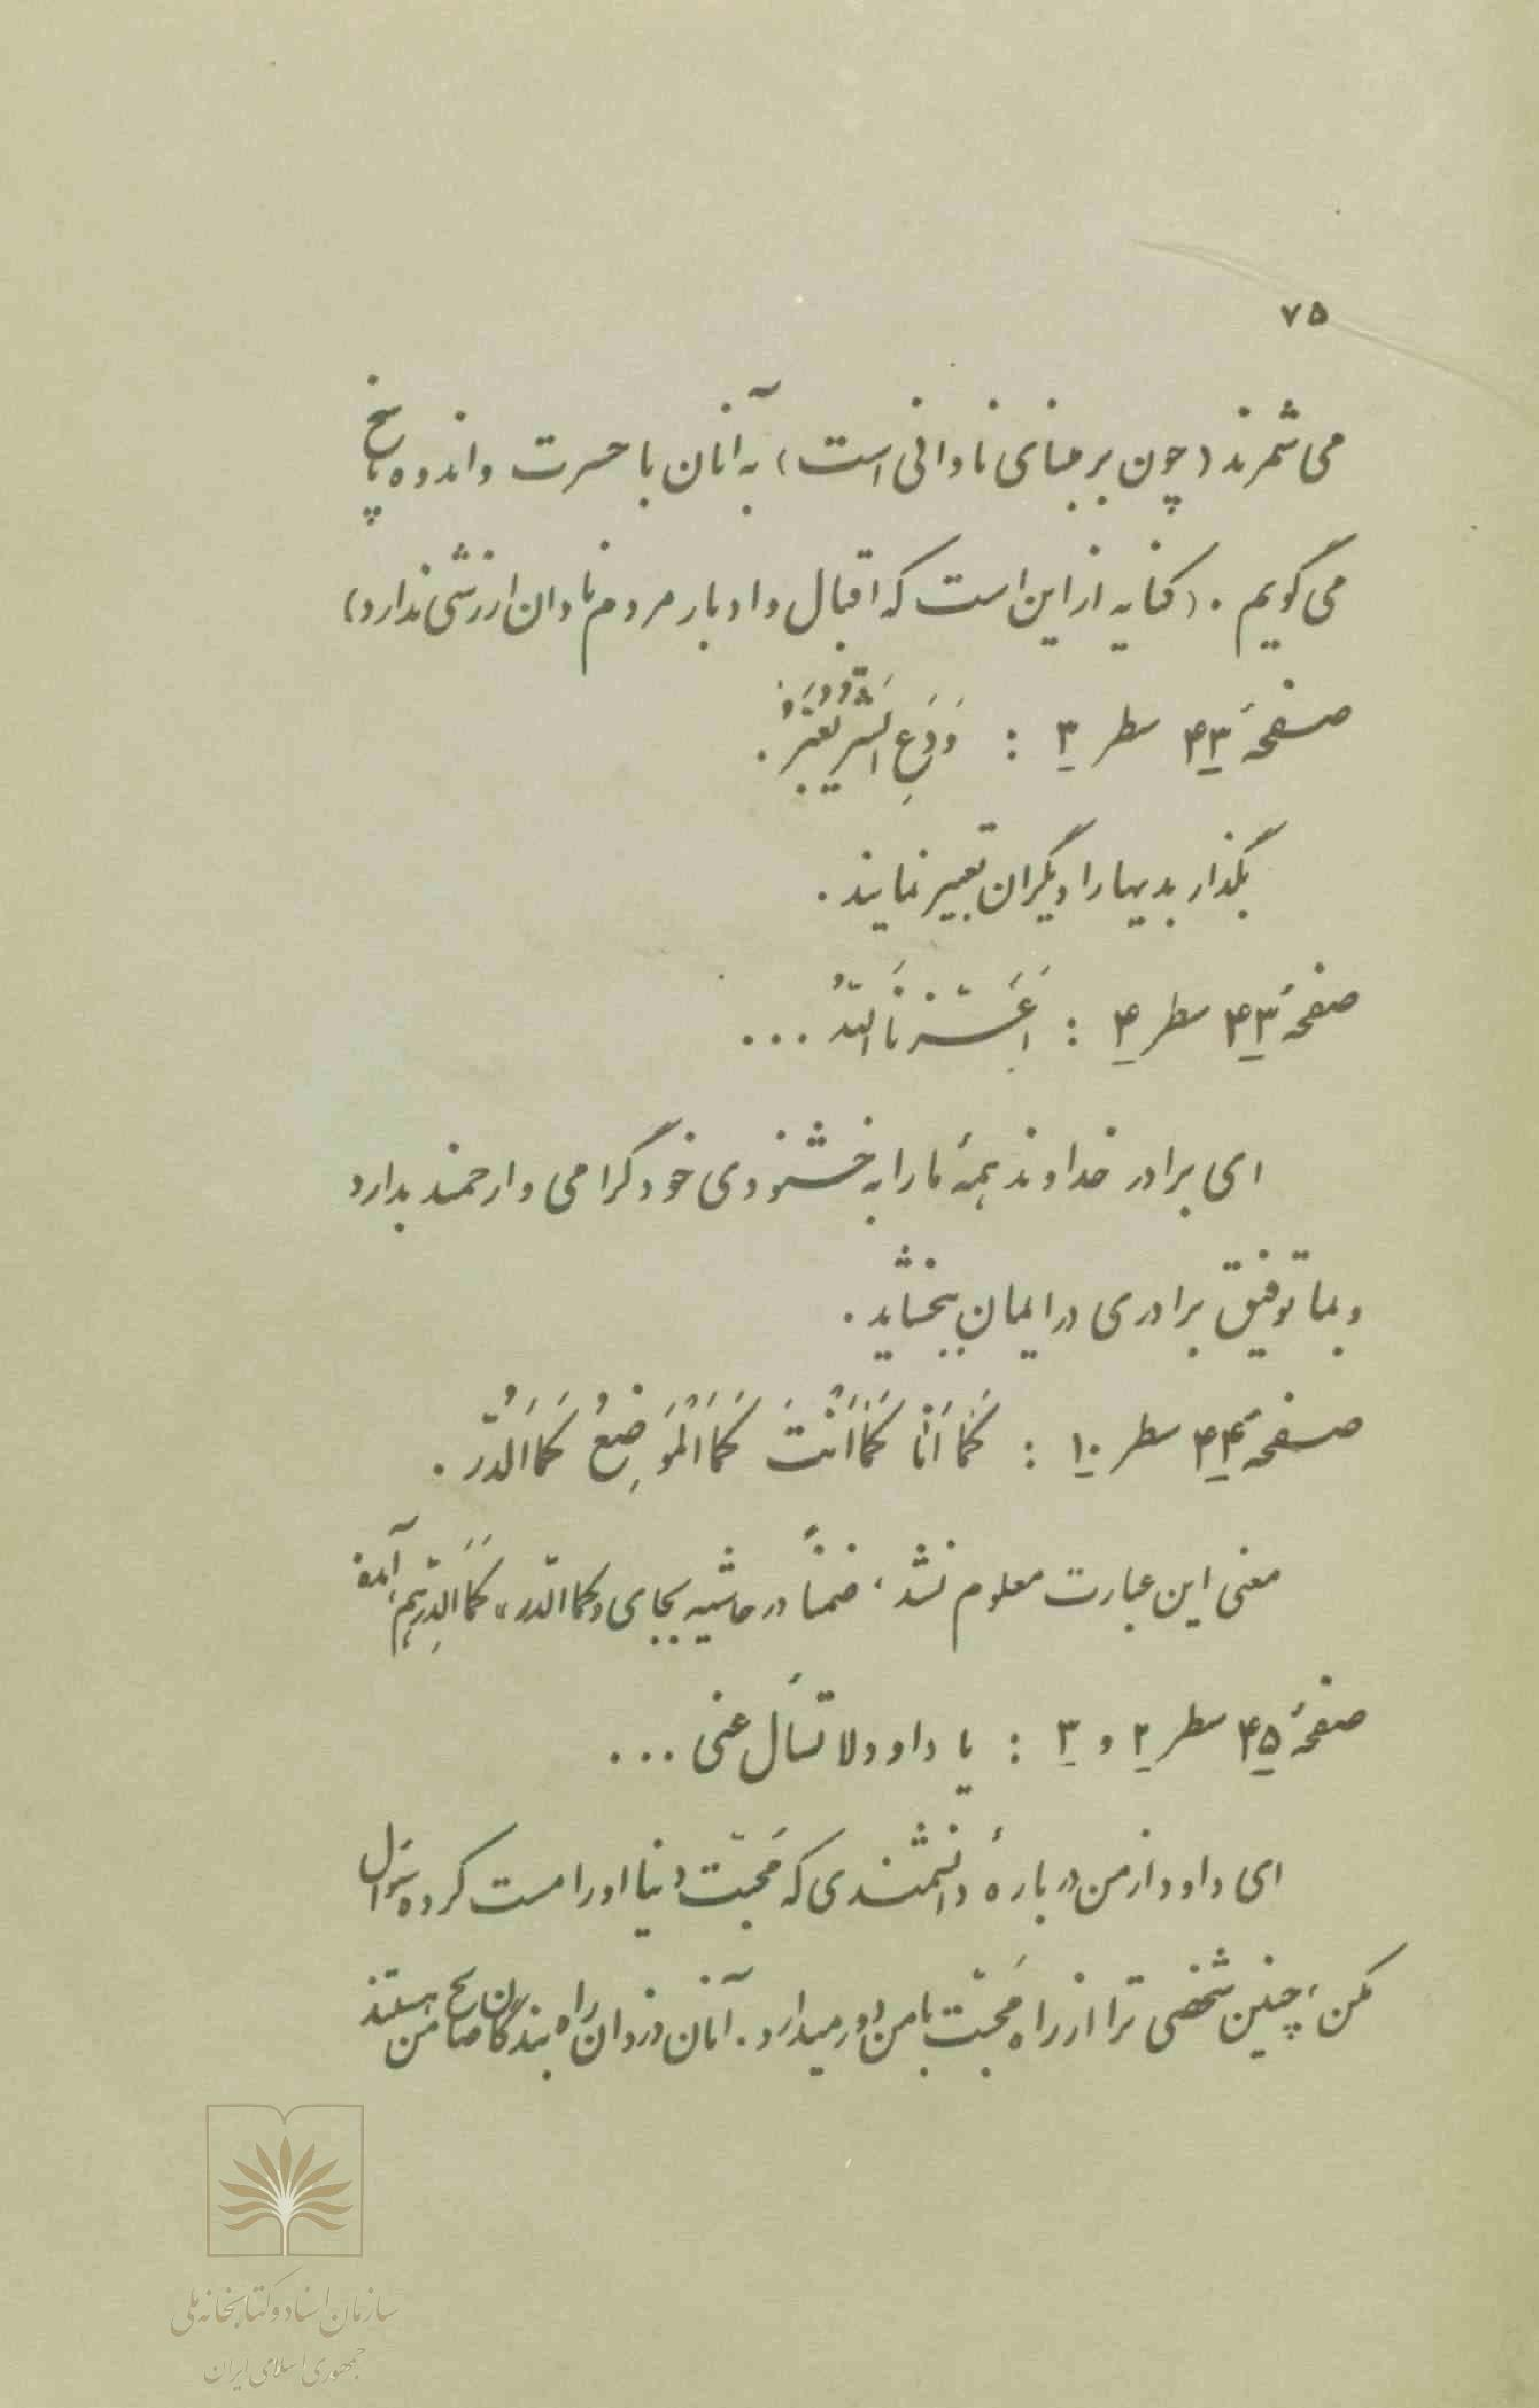 ۷۵
می‌شمرند (چون بر مبنای نادانی است) به آنان با حسرت و اندوه پاسخ
می‌گویم . (کنایه از این است که اقبال و ادبار مردم نادان ارزشی ندارد)
صفحهٔ ۴۳ سطر ۳ : وَدَعِ الشَّرَّ یُعْبَرُ .
بگذار بدیها را دیگران تعبیر نمایند .
صفحهٔ ۴۳ سطر ۴ : اَعَزَّنَا اللّهُ ...
ای برادر خداوند همهٔ ما را به خشنودی خود گرامی و ارجمند بدارد
و بما توفیق برادری در ایمان ببخشاید .
صفحهٔ ۴۴ سطر ۱۰ : کَمَا اَنَا کَمَا اَنْتَ کَمَا الْمَوَضِعُ کَمَا الدُّر .
معنی این عبارت معلوم نشد، ضمناً در حاشیه بجای «کما الدّر» کَمَا الدِّرهَم، آمده
صفحهٔ ۴۵ سطر ۲ و ۳ : یا داوود لا تسأل عنی ...
ای داوود از من دربارهٔ دانشمندی که مَحبّت دنیا او را مست کرده سؤال
مکن، چنین شخصی ترا از راه مَحبّت با من دور میدارد . آنان دزدان راه بندگان صالح من هستند
سازمان اسناد و کتابخانه ملی
جمهوری اسلامی ایران